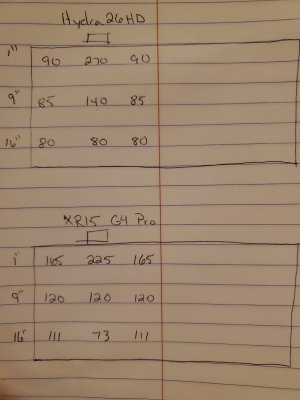 Hydra 26HD
1" 90 270 90
9" 85 140 85
16" 80 80 80
XR15 G4 Pro
1" 165 225 165
9" 120 120 120
16" 111 73 111